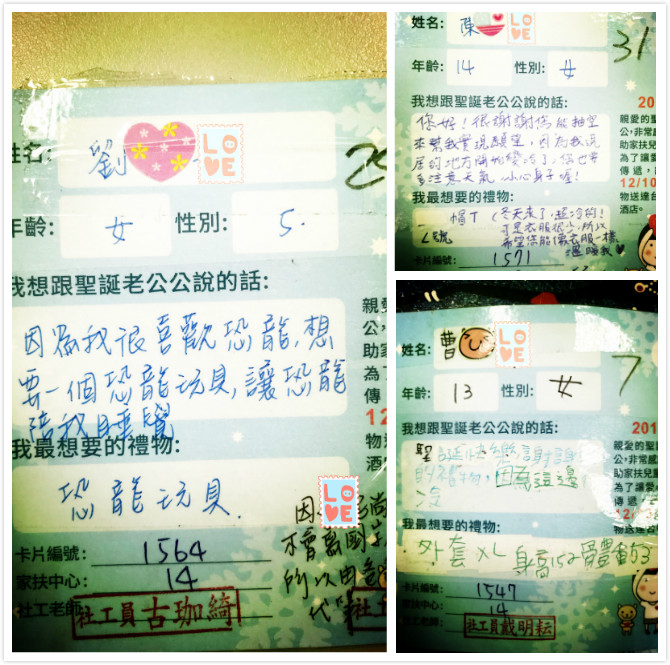 姓名: 劉
LOVE
年齡: 女 性別: 5.
我想跟聖誕老公公說的話:
因為我很喜歡恐龍,想
要一個恐龍玩具,讓恐龍
陪我睡覺
我最想要的禮物:
恐龍玩具.
LOVE
卡片編號: 1564
家扶中心: 14
社工老師: 社工員古珈綺
不會
所以由
代
姓名: 陳
LOVE
31
年齡: 14 性別: 女
我想跟聖誕老公公說的話:
你好!很謝謝你能抽空
來幫我實現願望,因為我現
居的地方開始變冷了,你也要
多注意天氣 小心身子喔!
我最想要的禮物:
帽T (冬天來了,超冷的!
L號 可是衣服很少,所以
希望您能像衣服一樣
溫暖我♥
卡片編號: 1571
親愛的聖
公,非常感
助家扶兒
為了讓愛
傳遞,
12/10
物送達台
酒店。
姓名: 曹
LOVE
7
年齡: 13 性別: 女
我想跟聖誕老公公說的話:
聖誕快樂謝謝
的禮物,因為這邊
冷
我最想要的禮物:
外套 XL 身高152 體重53
卡片編號: 1547
家扶中心: 14
社工老師: 社工員戴明耘
201
親愛的聖
公,非常感
助家扶兒
為了讓愛
傳遞
12/
物送達